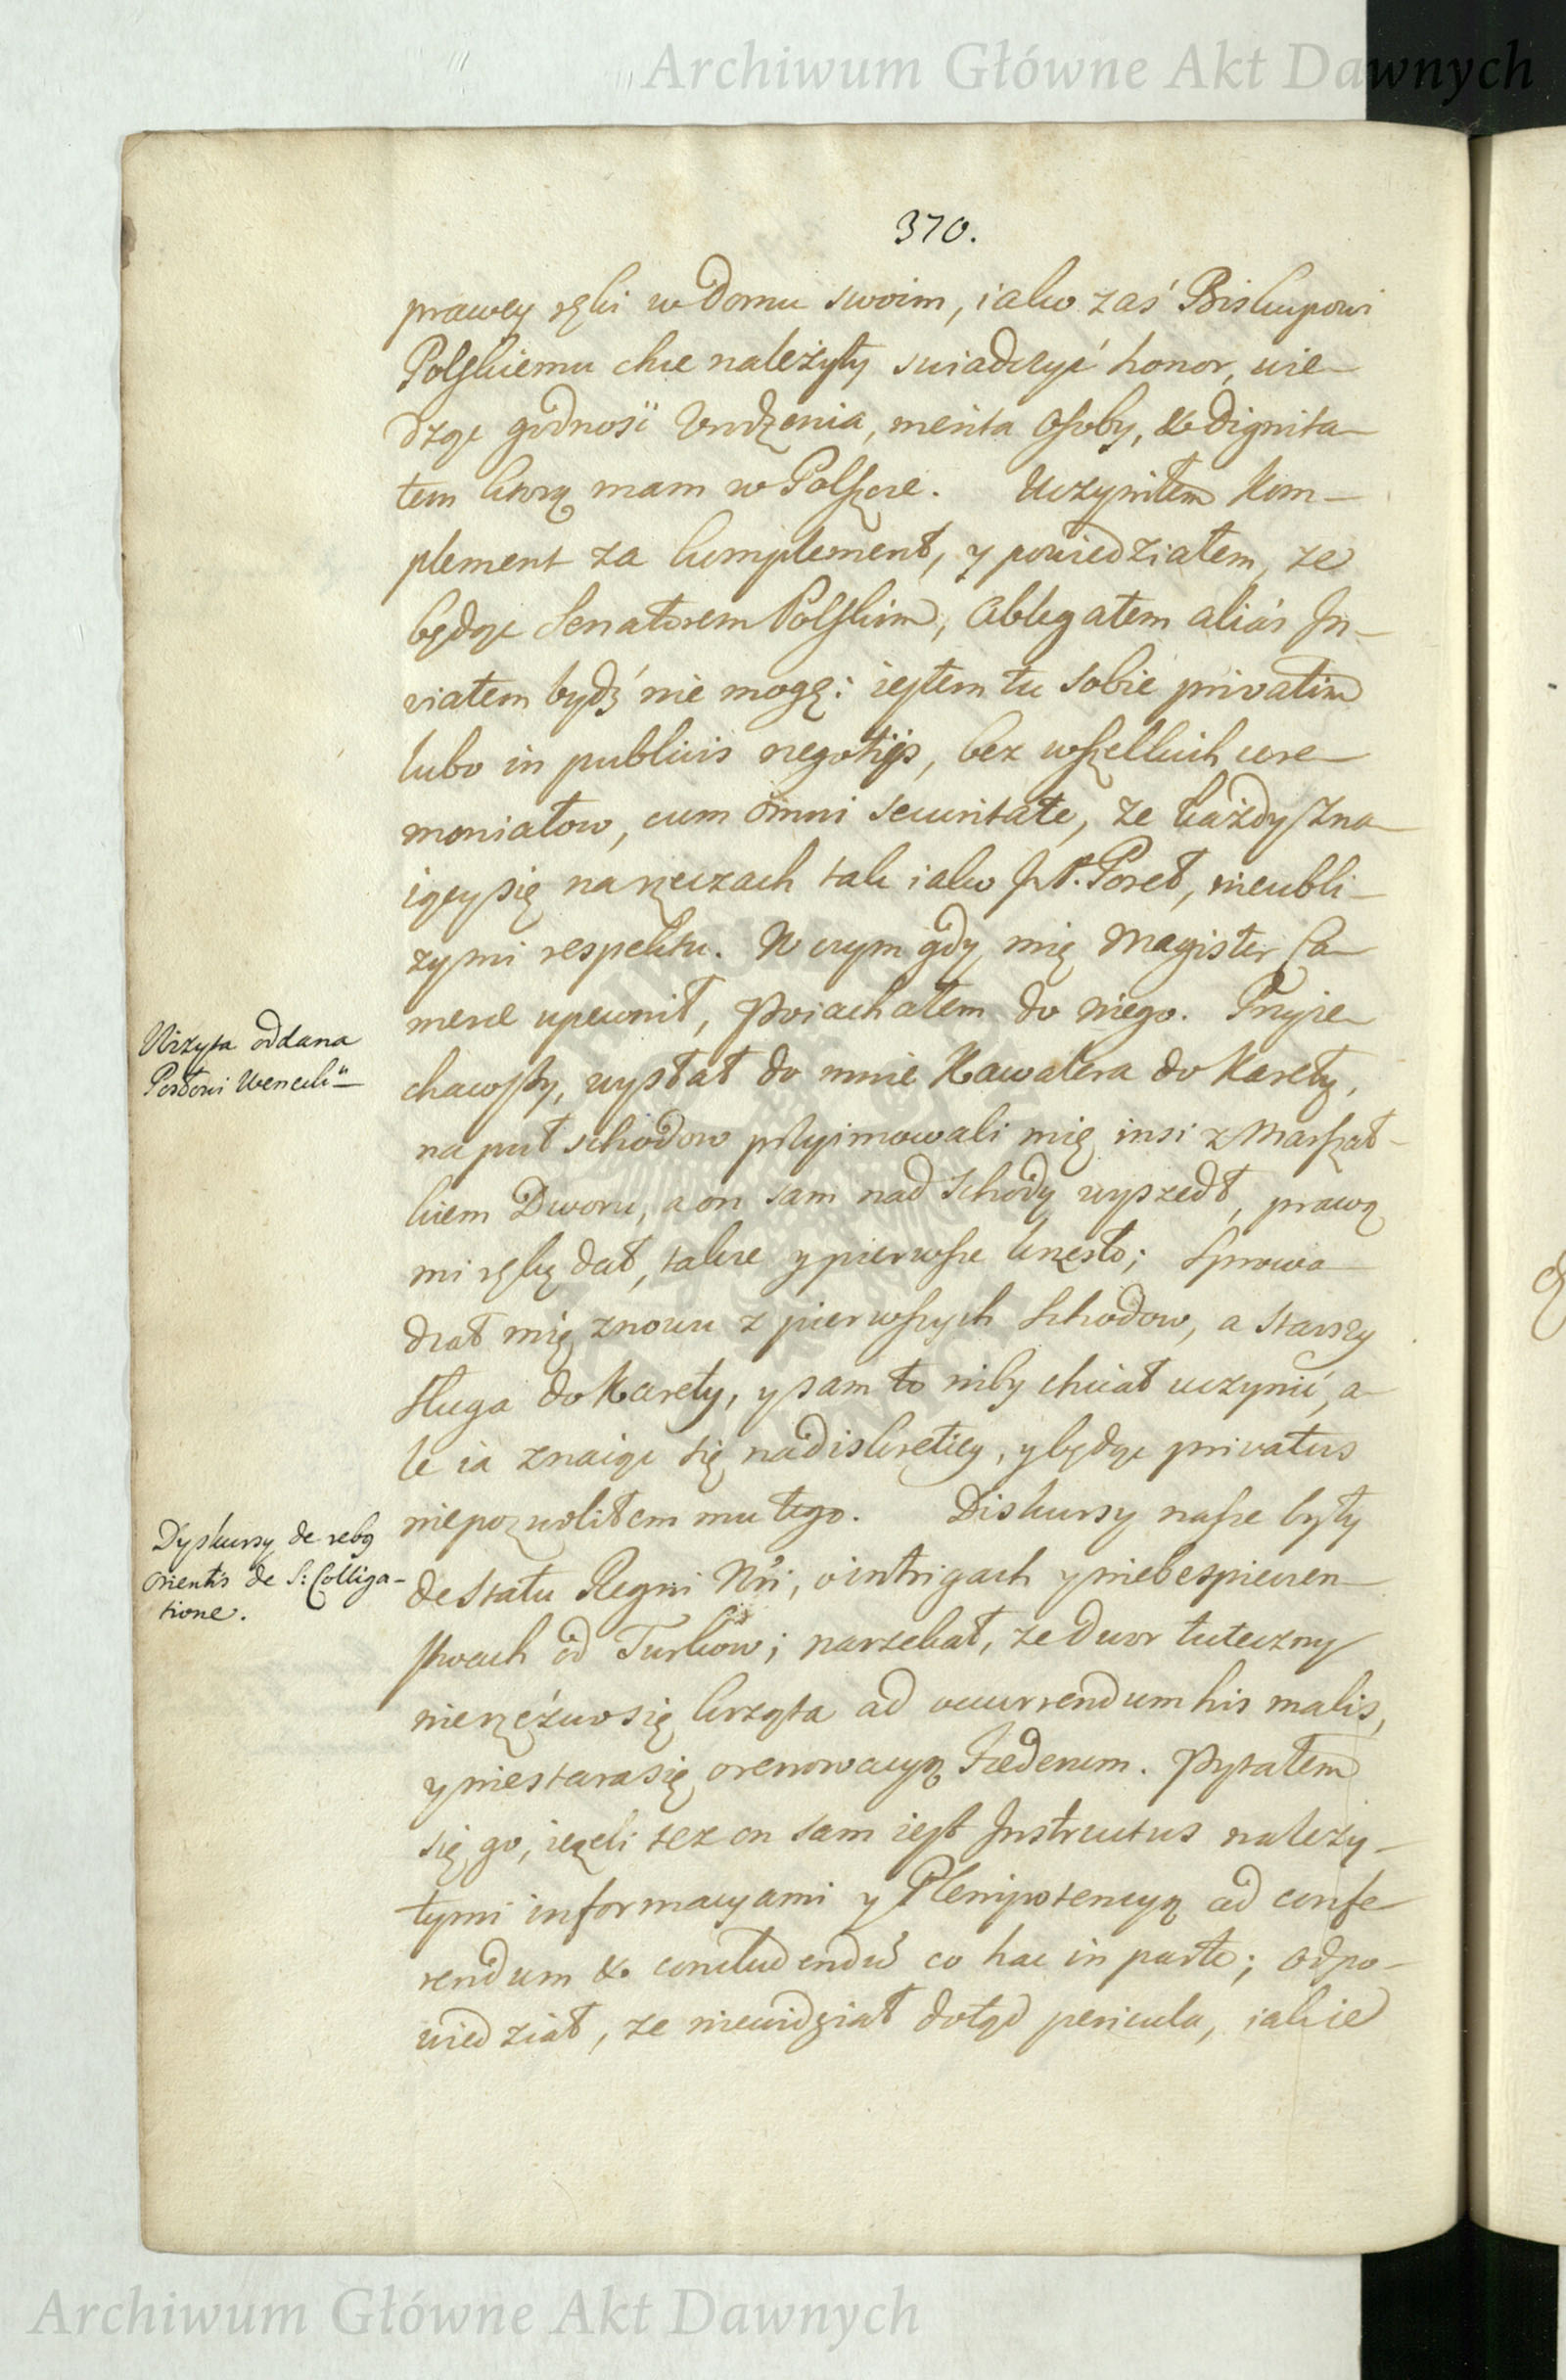 Archiwum Główne Akt Dawnych
370.
prawey ręki w Domu swoim, iako zaś Biskupowi
Polskiemu chce należyty swiadczyć honor, wie-
dząc godnosċ Urodzenia, merita Osoby, & Dignita-
tem ktorą mam w Polszcze. Uczyniłem kom-
plement za komplement, y powiedziałem, ze
będąc Senatorem Polskim, Ablegatem aliàs In-
viatem bydź nie mogę: iestem tu sobie privatim
lubo in publicis negotijs, bez wszelkich cere-
moniałow, cum omni securitate, ze każdy zna-
iący się na rzeczach tak iako JP. Poseł, nieubli-
zy mi respektu. W czym gdy mię Magister Ca-
merae upewnił, poiachałem do niego. Przyie-
Wizyta oddana
Posłowi Wenecki-
chawszy, wysłał do mnie Kawalera do Karety,
na puł schodow przyimowali mię insi z Marszał-
kiem Dworu, a on sam nad Schody wyszedł, prawą
mi rękę dał, takze y pierwsze krzesło; Sprowa-
dzał mię znowu z pierwszych Schodow, a starszy
sługa do Karety, y sam to niby chciał uczynić, a-
le ia znaiąc się na diskretiey, y będąc privatus
niepozwoliłem mu tego. Diskursy nasze były
Dyskursy de rebg
orientis de S: Colliga-
tione.
de Statu Regni Nri, o intrigach y niebespieczen-
stwach od Turkow; narzekał, ze dwor tuteczny
nierzéźwo się krząta ad occurrendum his malis,
y niestara się o renowacyą Foederum. Pytałem
się go, iezeli tez on sam iest Instructus nalezy-
tymi informacyami y Plenipotencyą ad confe-
rendum & concludendũ co hac in parte; odpo-
wiedział, ze niewidział dotąd pericula, iakie
Archiwum Główne Akt Dawnych